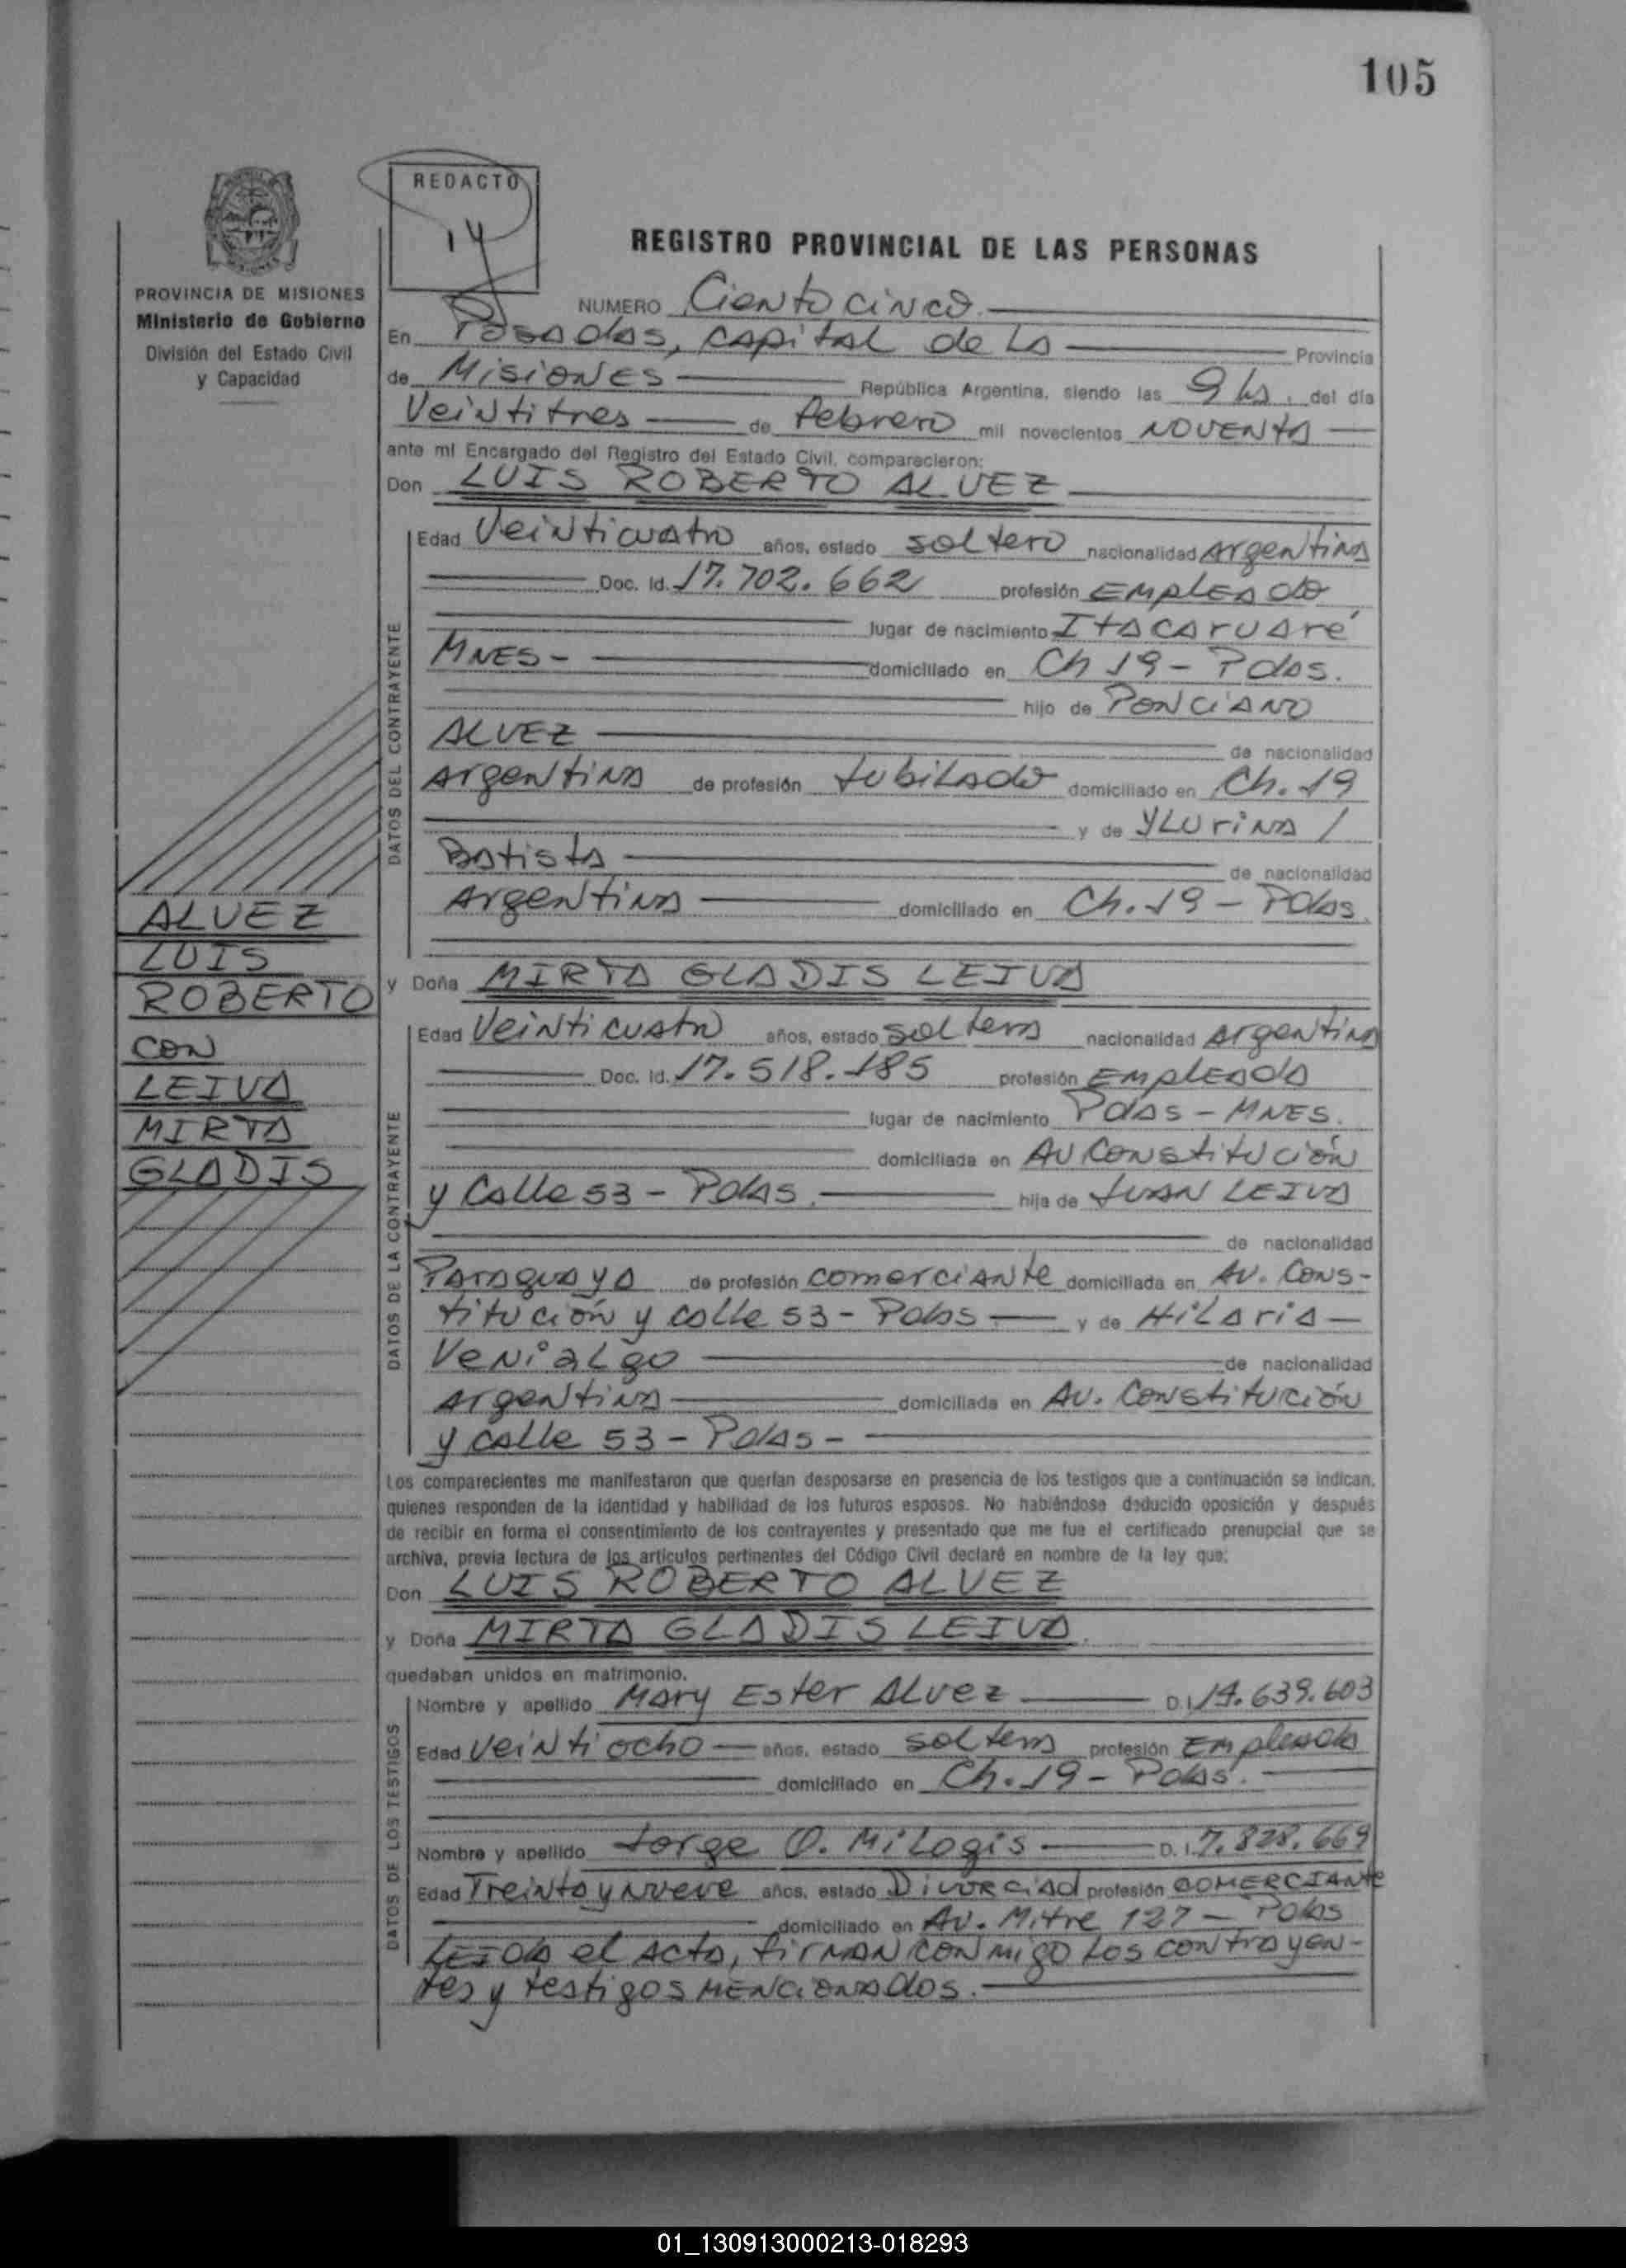 105
REDACTO
14
REGISTRO PROVINCIAL DE LAS PERSONAS
PROVINCIA DE MISIONES
Ministerio de Gobierno
División del Estado Civil
y Capacidad
NUMERO Ciento cinco.
En Posadas, capital de la Provincia
de Misiones República Argentina, siendo las 9 hs. del día
Veintitres de febrero mil novecientos noventa
ante mi Encargado del Registro del Estado Civil, comparecieron:
Don LUIS ROBERTO ALVEZ
DATOS DEL CONTRAYENTE
Edad Veinticuatro años, estado soltero nacionalidad Argentina
Doc. Id. 17.702.662 profesión Empleado
lugar de nacimiento Itacaruaré
MNES- domiciliado en Ch 19 - Pdas.
hijo de PONCIANO
ALVEZ de nacionalidad
Argentina de profesión Jubilado domiciliado en Ch. 19
y de YLURINA /
Batista de nacionalidad
Argentina domiciliado en Ch. 19 - Pdas
y Doña MIRTA GLADIS LEIVA
DATOS DE LA CONTRAYENTE
Edad Veinticuatro años, estado soltera nacionalidad Argentina
Doc. Id. 17.518.185 profesión Empleada
lugar de nacimiento Pdas - MNES.
domiciliada en Av Constitución
y Calle 53 - Pdas. hija de JUAN LEIVA
de nacionalidad
Paraguaya de profesión comerciante domiciliada en Av. Cons-
titución y calle 53 - Pdas y de Hilaria
Venialgo de nacionalidad
Argentina domiciliada en Av. Constitución
y calle 53 - Pdas -
ALVEZ
LUIS
ROBERTO
CON
LEIVA
MIRTA
GLADIS
Los comparecientes me manifestaron que querían desposarse en presencia de los testigos que a continuación se indican,
quienes responden de la identidad y habilidad de los futuros esposos. No habiéndose deducido oposición y después
de recibir en forma el consentimiento de los contrayentes y presentado que me fue el certificado prenupcial que se
archiva, previa lectura de los artículos pertinentes del Código Civil declaré en nombre de la ley que:
Don LUIS ROBERTO ALVEZ
y Doña MIRTA GLADIS LEIVA.
quedaban unidos en matrimonio.
DATOS DE LOS TESTIGOS
Nombre y apellido Mary Ester Alvez D.I. 14.639.603
Edad veintiocho años, estado soltera profesión Empleada
domiciliado en Ch. 19 - Pdas.
Nombre y apellido Jorge O. Milogis D.I. 7.828.669
Edad Treinta y nueve años, estado Divorciad profesión COMERCIANTE
domiciliado en Av. Mitre 127 - Pdas
LEIDA el Acta, firman conmigo los contrayen-
tes y testigos mencionados.
01_130913000213-018293